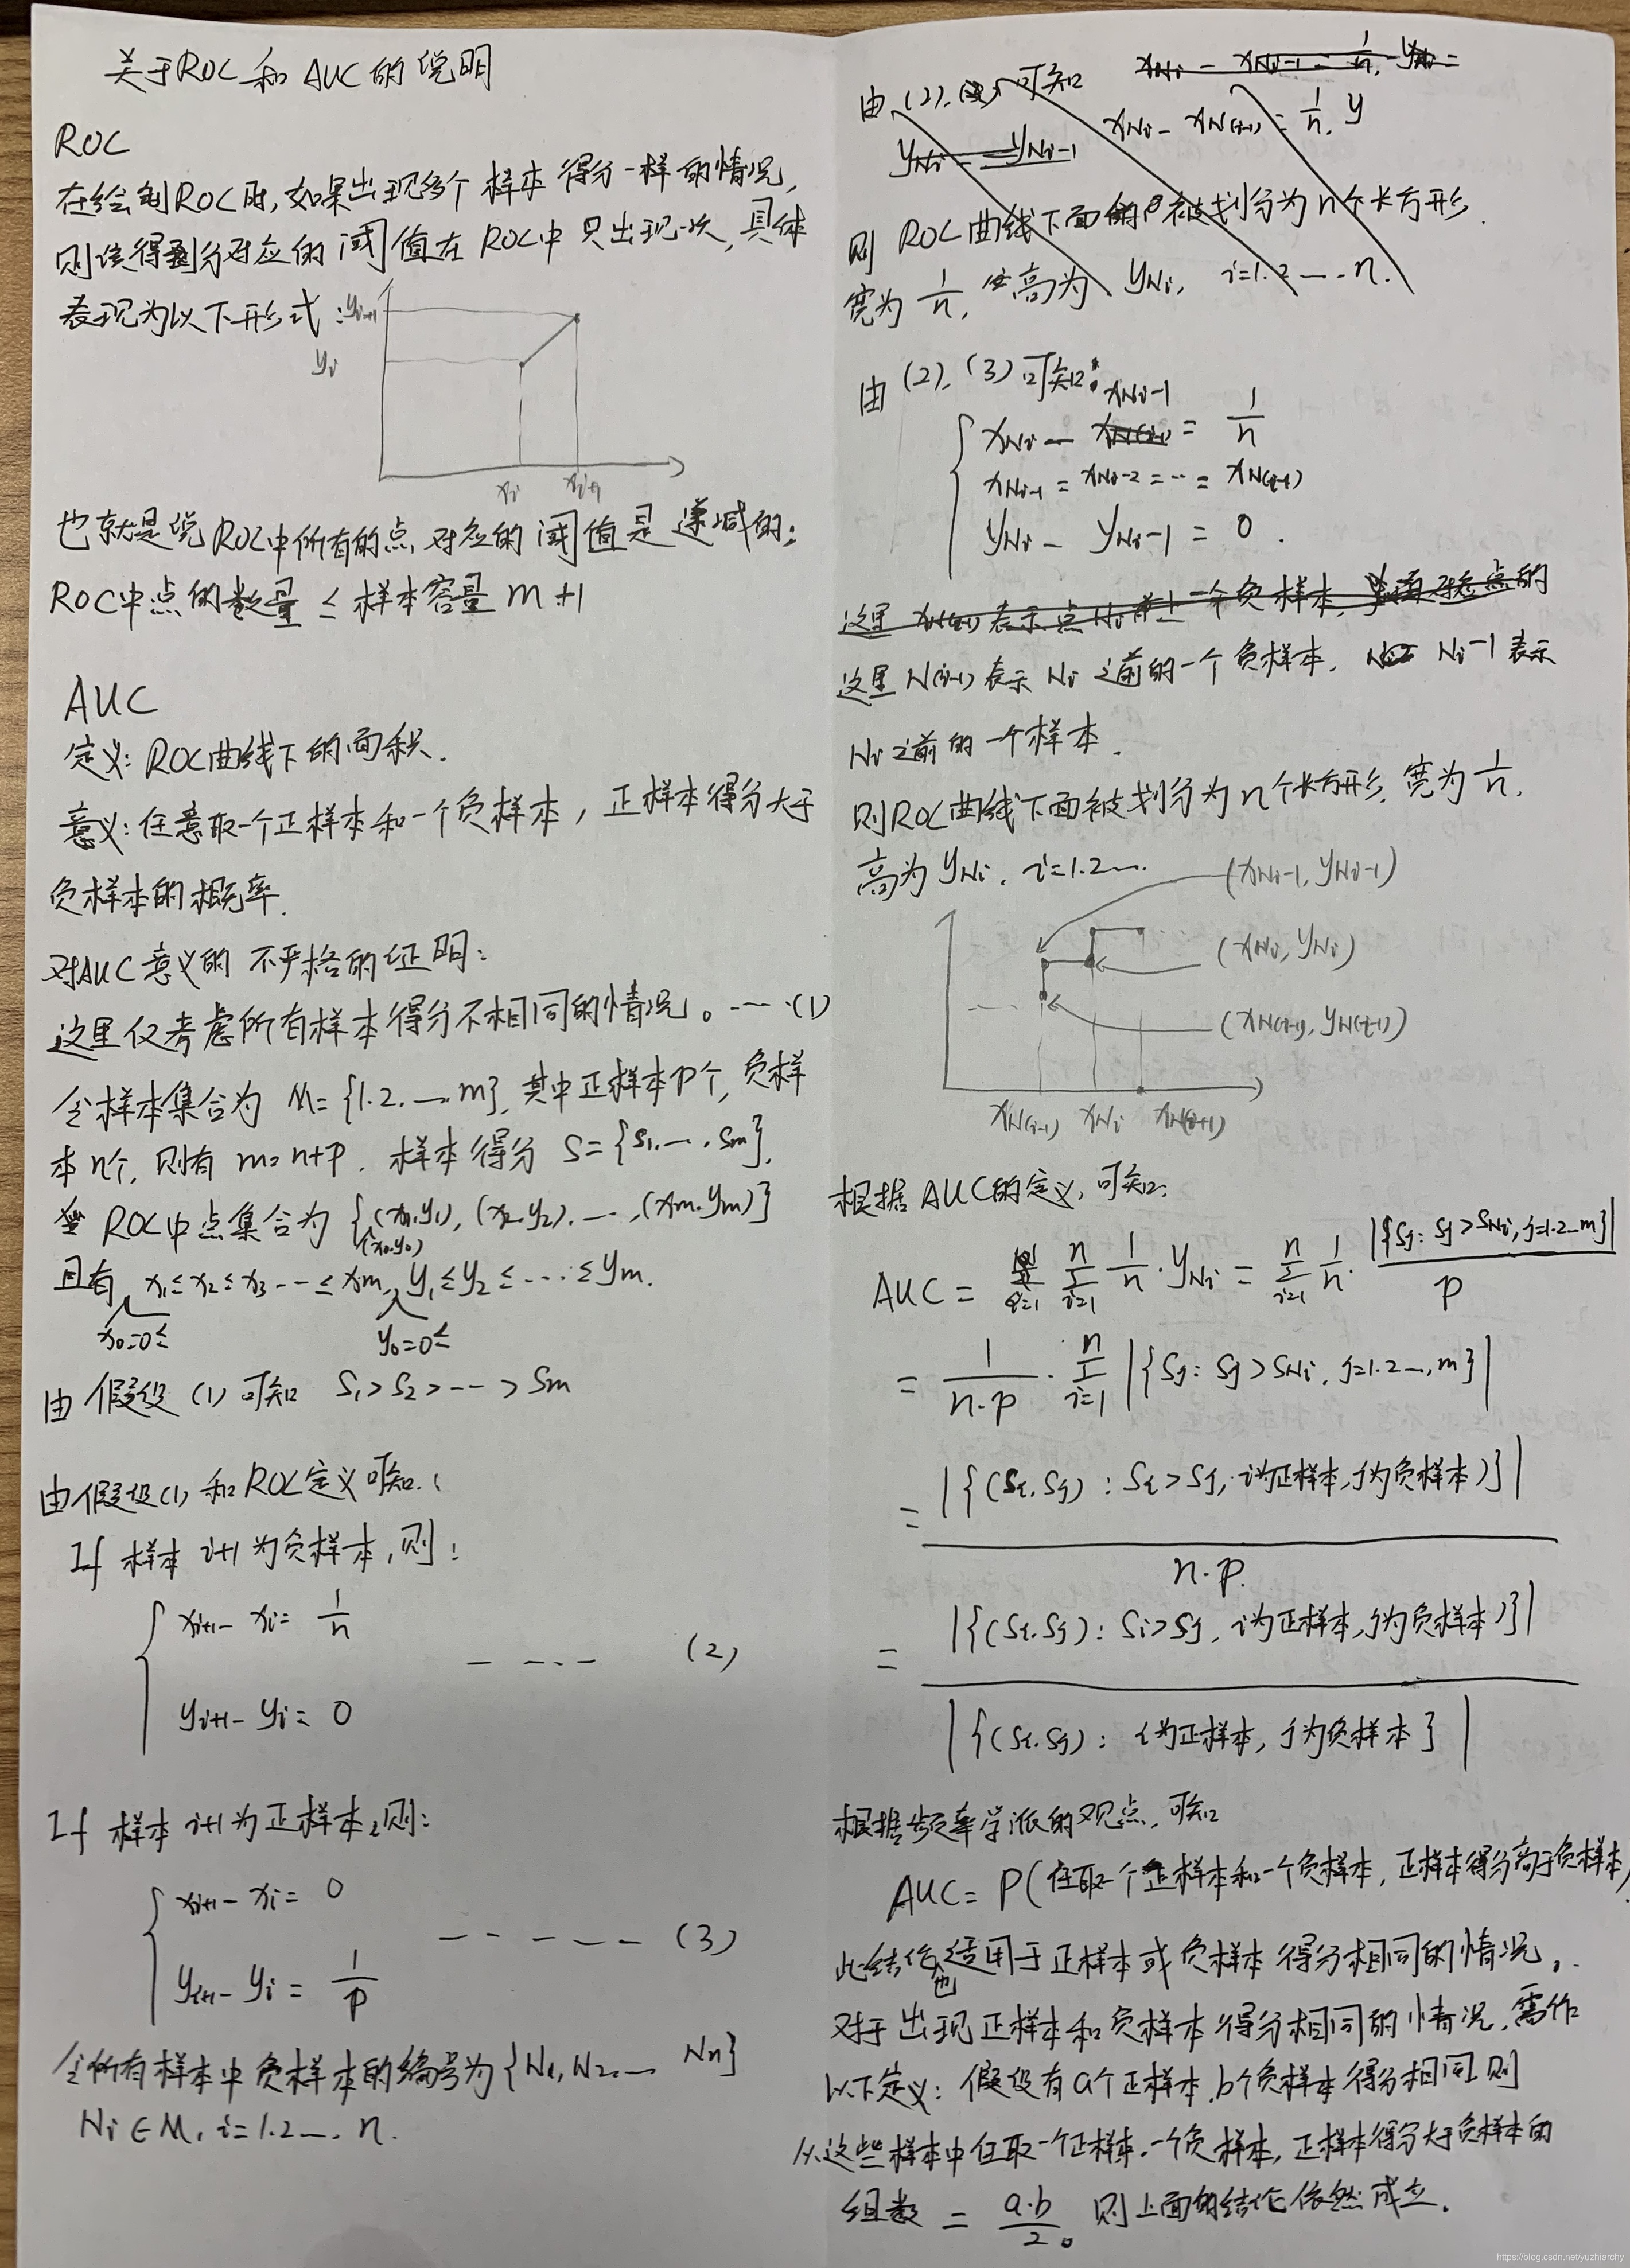 关于ROC和AUC的说明
ROC
在绘制ROC时,如果出现多个样本得分一样的情况,
则该得分对应的阈值在ROC中只出现一次,具体
表现为以下形式:
y_{i+1}
y_i
x_i x_{i+1}
也就是说ROC中所有的点对应的阈值是递减的;
ROC中点的数量 ≤ 样本容量 m+1
AUC
定义: ROC曲线下的面积.
意义: 任意取一个正样本和一个负样本, 正样本得分大于
负样本的概率.
对AUC意义的不严格的证明:
这里仅考虑所有样本得分不相同的情况。---(1)
令样本集合为 M={1.2.…m}, 其中正样本p个, 负样
本n个, 则有 m=n+p. 样本得分 S={S_1,…,S_m},
ROC中点集合为 {(x_0,y_0), (x_1,y_1), (x_2,y_2),…,(x_m,y_m)}
且有 x_0=0≤ x_1≤x_2≤x_3…≤x_m, y_0=0≤ y_1≤y_2≤…≤y_m.
由假设(1)可知 S_1>S_2>…>S_m
由假设(1)和ROC定义可知:
If 样本 i+1 为负样本, 则:
x_{i+1} - x_i = 1/n
y_{i+1} - y_i = 0 ---- (2)
If 样本 i+1 为正样本, 则:
x_{i+1} - x_i = 0
y_{i+1} - y_i = 1/p ----- (3)
令所有样本中负样本的编号为{N_1,N_2,… N_n}
N_i∈M, i=1.2…. n.
由(2).(3)可知
x_{Ni} - x_{N(i-1)} = 1/n, y
y_{Ni} = y_{Ni-1}
则 ROC曲线下面被划分为n个长方形.
宽为 1/n, 高为 y_{Ni}, i=1.2….n.
由(2),(3)可知:
x_{Ni} - x_{Ni-1} = 1/n
x_{Ni-1} = x_{Ni-2} = … = x_{N(i-1)}
y_{Ni} - y_{Ni-1} = 0.
这里N(i-1)表示Ni之前的一个负样本, Ni-1表示
Ni之前的一个样本.
则ROC曲线下面被划分为n个长方形, 宽为 1/n,
高为 y_{Ni}, i=1.2….
(x_{Ni-1}, y_{Ni-1})
(x_{Ni}, y_{Ni})
(x_{N(i-1)}, y_{N(i-1)})
x_{N(i-1)} x_{Ni} x_{N(i+1)}
根据AUC的定义, 可知:
AUC = Σ_{i=1}^{n} 1/n · y_{Ni} = Σ_{i=1}^{n} 1/n · |{S_j: S_j>S_{Ni}, j=1.2…m}| / p
= 1/(n·p) · Σ_{i=1}^{n} |{S_j: S_j>S_{Ni}, j=1.2…,m}|
= |{(S_i,S_j): S_i>S_j, i为正样本, j为负样本)}| / n·p.
= |{(S_i,S_j): S_i>S_j, i为正样本, j为负样本)}| / |{(S_i,S_j): i为正样本, j为负样本}|
根据频率学派的观点, 可知
AUC = P(任取一个正样本和一个负样本, 正样本得分高于负样本).
此结论也适用于正样本或负样本得分相同的情况,
对于出现正样本和负样本得分相同的情况, 需作
以下定义: 假设有a个正样本, b个负样本得分相同, 则
从这些样本中任取一个正样本, 一个负样本, 正样本得分大于负样本的
组数 = a·b/2。则上面的结论依然成立.
https://blog.csdn.net/yuzhiarchy